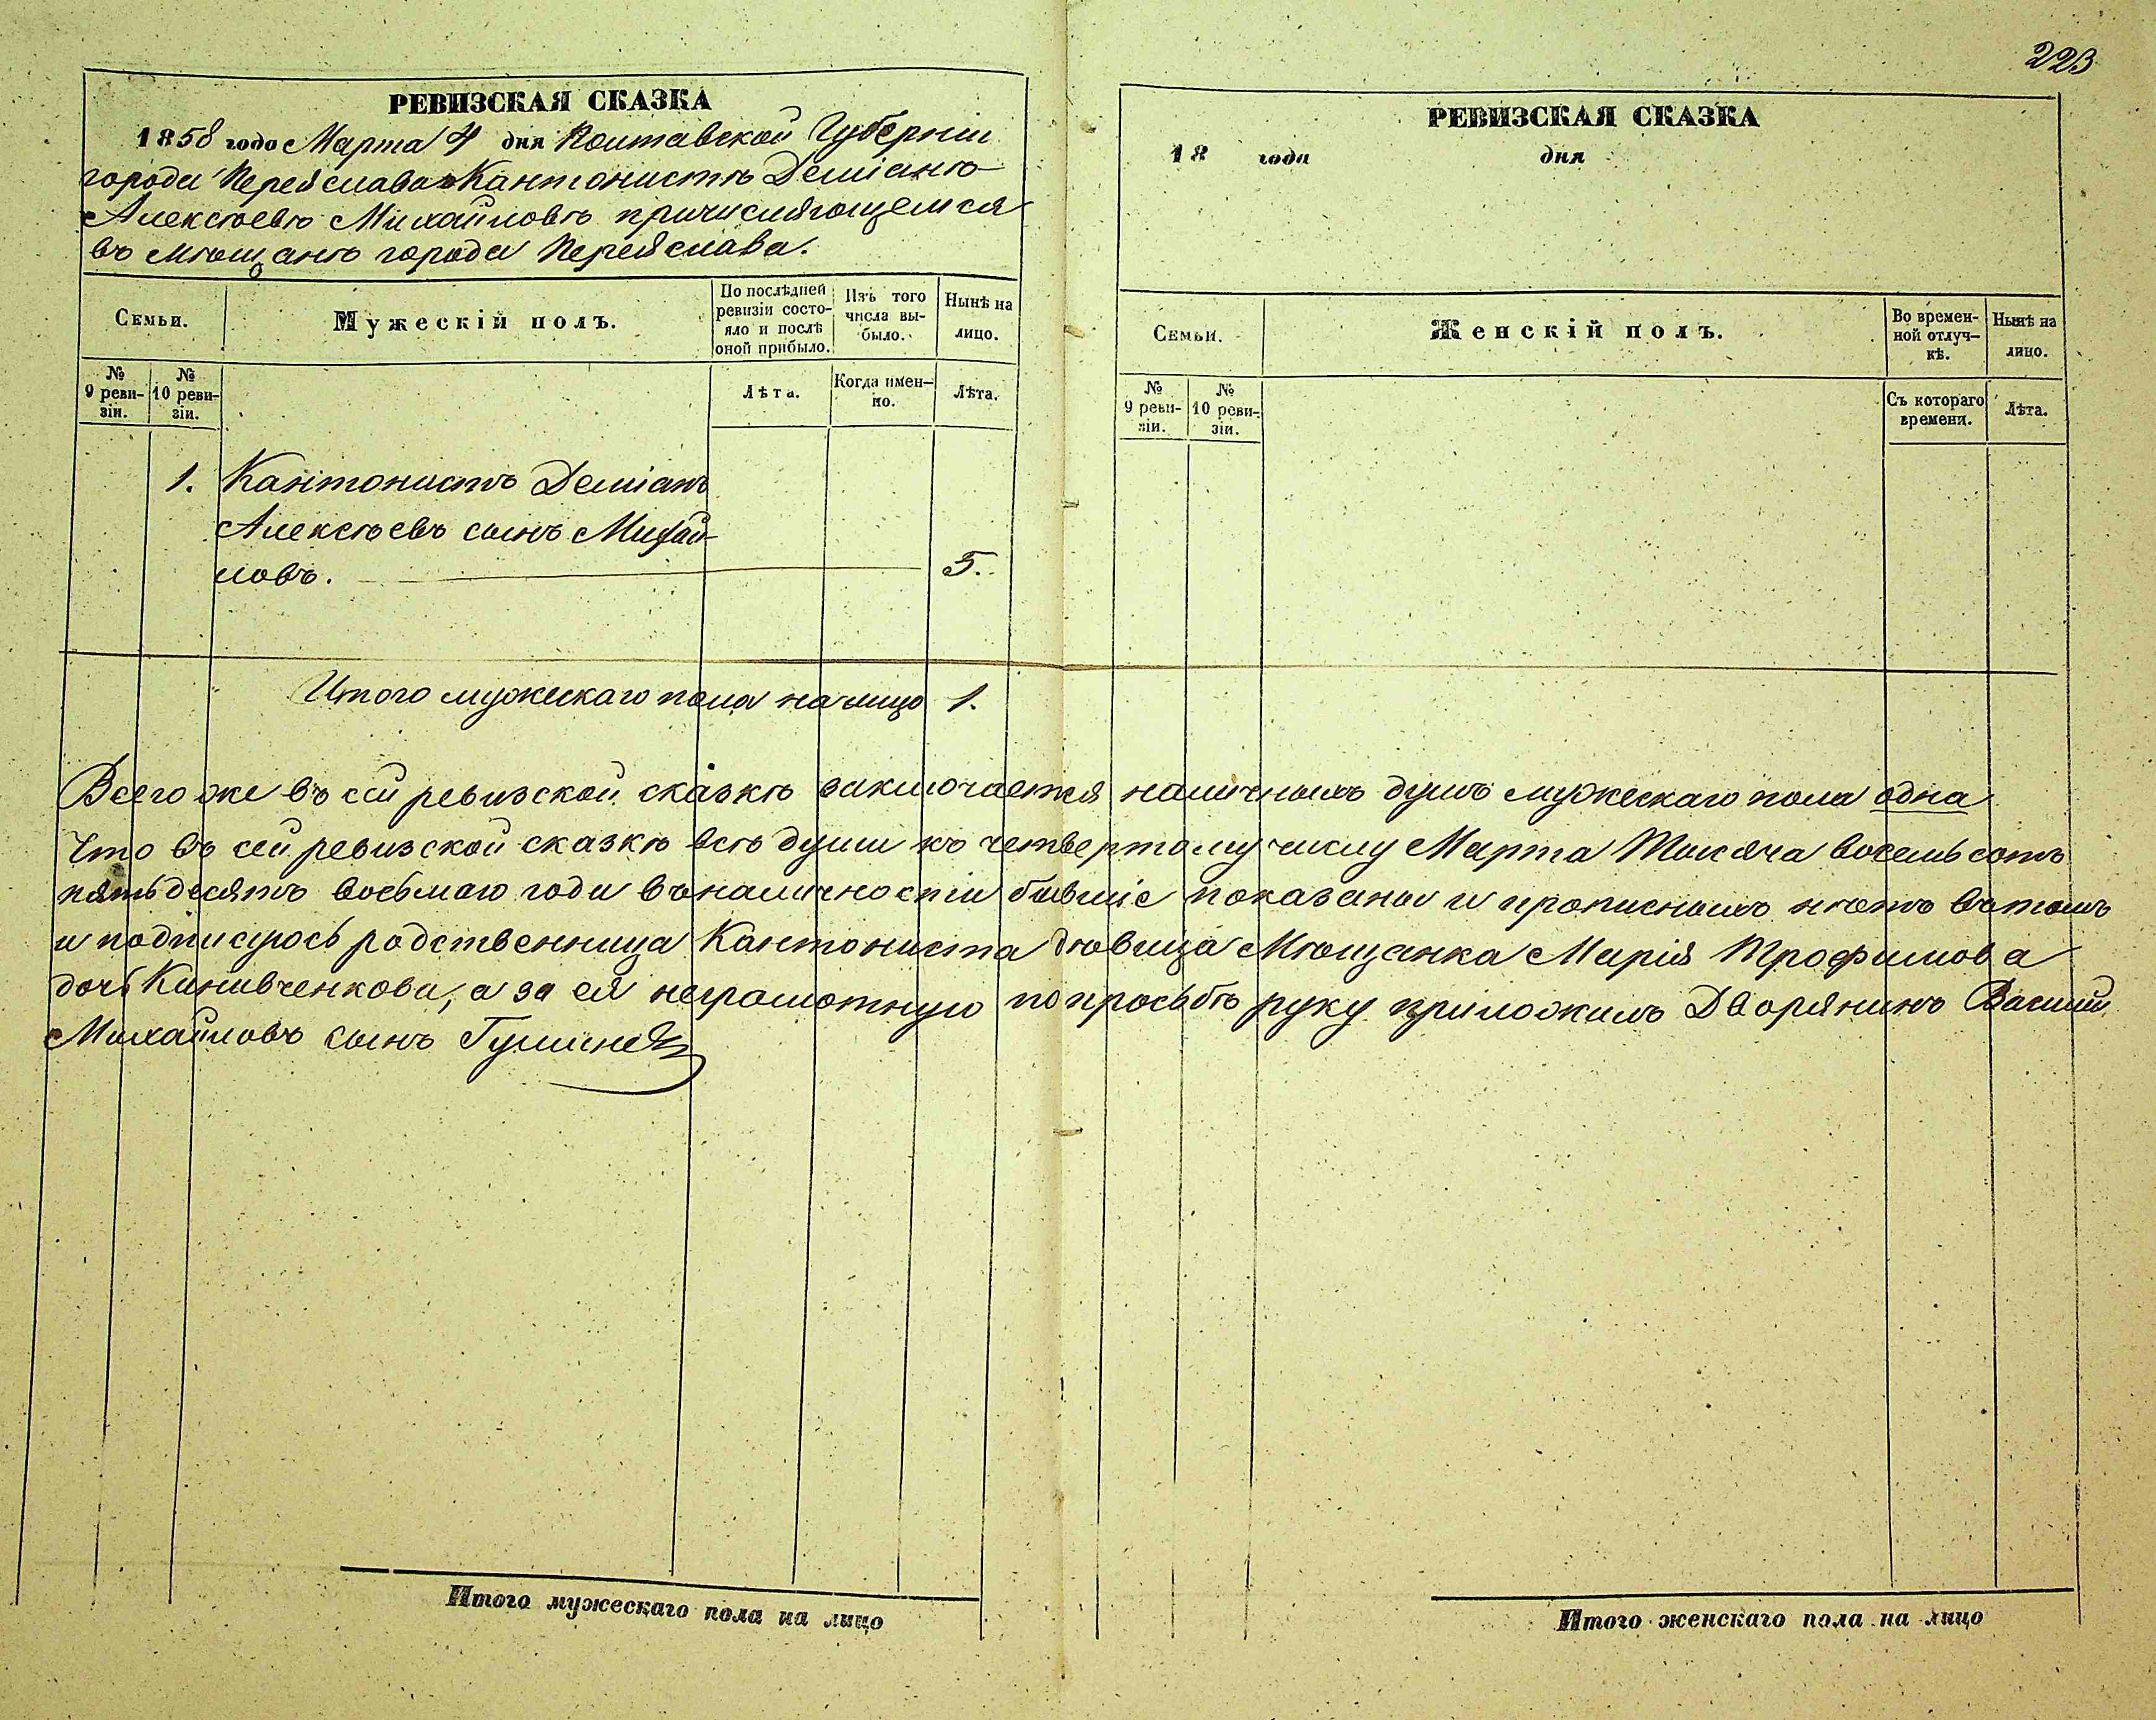 223
РЕВИЗСКАЯ СКАЗКА
1858 года Марта 4 дня Полтавской Губерніи
города Переяслава Кантонистѣ Деміанѣ
Алексѣевѣ Михайловѣ причисляющемся
въ мѣщане города Переяслава.
Семьи.
Мужескій полъ.
По послѣдней ревизіи состояло и послѣ оной прибыло.
Изъ того числа выбыло.
Нынѣ на лицо.
№ 9 ревизіи.
№ 10 ревизіи.
Лѣта.
Когда именно.
Лѣта.
1. Кантонистъ Деміанъ
Алексѣевъ сынъ Михай-
ловъ. 5.
Итого мужескаго пола налицо 1.
РЕВИЗСКАЯ СКАЗКА
18 года дня
Семьи.
Женскій полъ.
Во временной отлучкѣ.
Нынѣ на лицо.
№ 9 ревизіи.
№ 10 ревизіи.
Съ котораго времени.
Лѣта.
Всего же въ сей ревизской сказкѣ заключается наличныхъ душъ мужескаго пола одна
Что въ сей ревизской сказкѣ всѣ души къ четвертому числу Марта Тысяча восемьсотъ
пятьдесятъ восьмаго года въ наличности бывшіе показаны и прописныхъ нѣтъ въ томъ
и подписуюсь родственница Кантониста дѣвица Мѣщанка Марія Трофимова
дочь Канивченкова, а за ея неграмотную по просьбѣ руку приложилъ Дворянинъ Василий
Михайловъ сынъ
Итого мужескаго пола на лицо
Итого женскаго пола на лицо